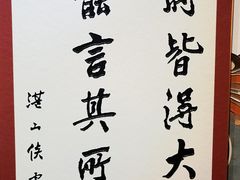 皆得大
能言其所
湛山倓